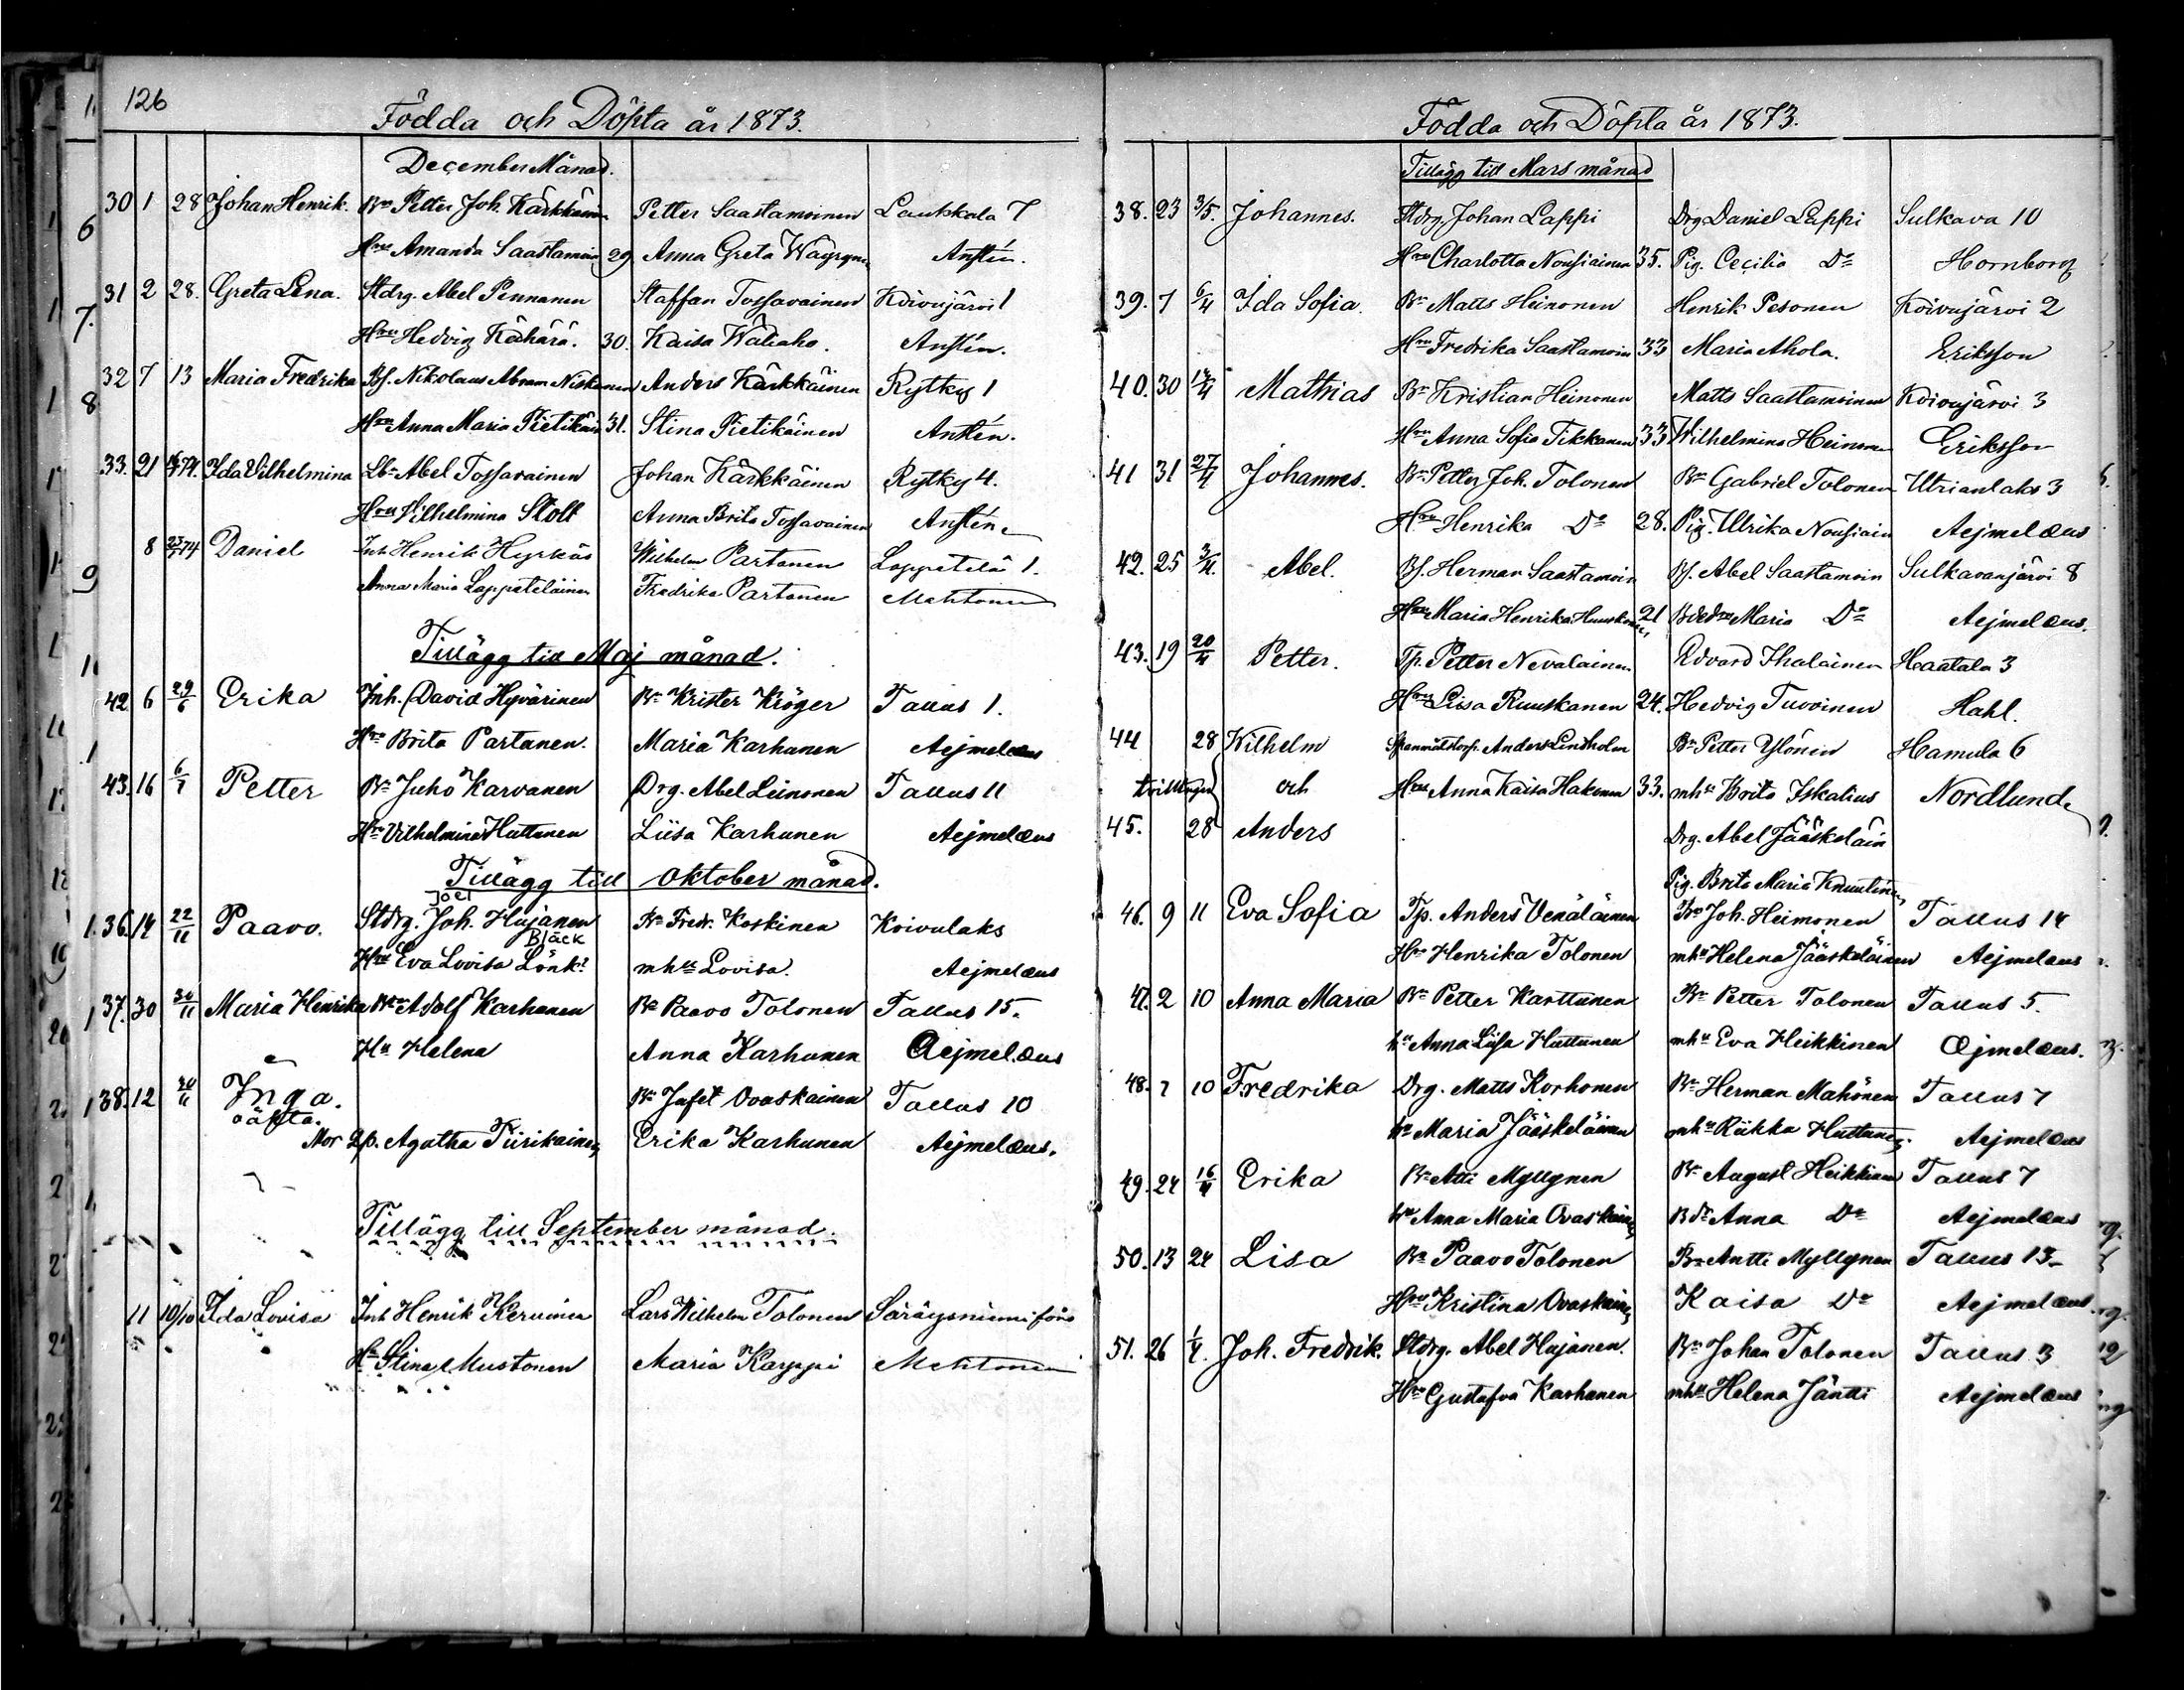 126
Födda och Döpta år 1873.
December Månad.
30 1 28 Johan Henrik. Bn Petter Joh. Kärkkäinen Petter Saastamoinen Laukkala 7
Hru Amanda Saastamoin 29 Anna Greta Wäyryn Anstén.
31 2 28. Greta Lena. Stdrg. Abel Pennanen Staffan Tossavainen Koivujärvi 1
Hru Hedvig Kähärä. 30. Kaisa Wäliaho. Anstén.
32 7 13 Maria Fredrika Bs. Nikolaus Abram Niskanen Anders Kärkkäinen Rytky 1
Hru Anna Maria Pietikäin 31. Stina Pietikäinen Anstén.
33. 21 74. Ida Vilhelmina Lbn Abel Tossavainen Johan Kärkkäinen Rytky 4.
Hru Vilhelmina Stolt Anna Brita Tossavainen Anstén
8 23/1 74 Daniel Inh Henrik Hyrkäs Wilhelm Partanen Lappetelä 1.
Anna Maria Lappeteläinen Fredrika Partanen Mehtonen
Tillägg till Maj månad.
42 6 29/6 Erika Inh. David Hyvärinen Bn Krister Kröger Tallus 1.
Hru Brita Partanen. Maria Karhunen Aejmelæus
43. 16 6/7 Petter Bn Juho Karvanen Drg. Abel Leinonen Tallus 11
Hru Vilhelmina Huttunen Liisa Karhunen Aejmelæus
Tillägg till Oktober månad.
Joel
1. 36. 14 22/11 Paavo. Stdrg. Joh. Hujanen Bn Fredr. Koskinen Koivulaks
Bläck
Hru Eva Lovisa Lönk mhu Lovisa. Aejmelæus
1 37. 30 30/11 Maria Henrika Bn Adolf Karhunen Bn Paavo Tolonen Tallus 15.
Hu Helena Anna Karhunen Aejmelæus
1 38. 12 30/11 Inga. Bn Jafet Ovaskainen Tallus 10
oäkta.
Mor Qp. Agatha Tiirikainen Erika Karhunen Aejmelæus.
Tillägg till September månad.
11 10/10 Ida Lovisa Inh Henrik Kerminen Lars Wilhelm Tolonen Säräysniemi förs
Hu Stina Mustonen Maria Karppi Mehtonen
Födda och Döpta år 1873.
Tillägg till Mars månad
38. 23 3/5. Johannes. Stdrg. Johan Lappi Drg Daniel Lappi Sulkava 10
Hru Charlotta Nousiainen 35. Pig. Cecilia Do Hornborg
39. 7 6/4 Ida Sofia. Bn Matts Heinonen Henrik Pesonen Koivujärvi 2
Hru Fredrika Saastamoin 33 Maria Ahola. Eriksson
40. 30 14/4 Mathias Bn Kristian Heinonen Matts Saastamoinen Koivujärvi 3
Hru Anna Sofia Tikkanen 33 Wilhelmina Heinonen Eriksson
41 31 27/4 Johannes. Bn Petter Joh. Tolonen Bn Gabriel Tolonen Utrianlaks 3
Hru Henrika Do 28. Pig. Ulrika Nousiain Aejmelæus
42. 25 3/4. Abel. Bs. Herman Saastamoin Bs. Abel Saastamoin Sulkavanjärvi 8
Hru Maria Henrika Huuskonen 21 Maria Do Aejmelæus.
43. 19 20/4 Petter. Tp. Petter Nevalainen Edvard Ihalainen Haatala 3
Hru Lisa Ruuskanen 24. Hedvig Tuovinen Hahl.
44 28 Wilhelm Anders Lindholm Bn Petter Ylönen Hamula 6
tvillingar och Hru Anna Kaisa Hakonen 33. mhu Brita Iskalius Nordlund
45. 28 Anders Drg. Abel Jääskeläin
Pig. Brita Maria Knuutinen
46. 9 11 Eva Sofia Tp. Anders Venäläinen Bn Joh. Heimonen Tallus 14
Hru Henrika Tolonen mhu Helena Jääskeläinen Aejmelæus
47. 2 10 Anna Maria Bn Petter Karttunen Bn Petter Tolonen Tallus 5.
hu Anna Lisa Huttunen mhu Eva Heikkinen Æjmelæus.
48. 7 10 Fredrika Drg. Matts Korhonen Bn Herman Mähönen Tallus 7
hu Maria Jääskeläinen mhu Riikka Huttunen. Aejmelæus
49. 24 16/4 Erika Bn Atti Myllynen Bn August Heikkinen Tallus 7
hu Anna Maria Ovaskainen Bdr Anna Do Aejmelæus
50. 13 24 Lisa Bn Paavo Tolonen Bn Antti Myllynen Tallus 13
Hru Kristina Ovaskainen Kaisa Do Aejmelæus
51. 26 1/4. Joh. Fredrik. Stdrg. Abel Hujanen. Bn Johan Tolonen Tallus 3
Hru Gustafva Karhunen mhu Helena Jäntti Aejmelæus